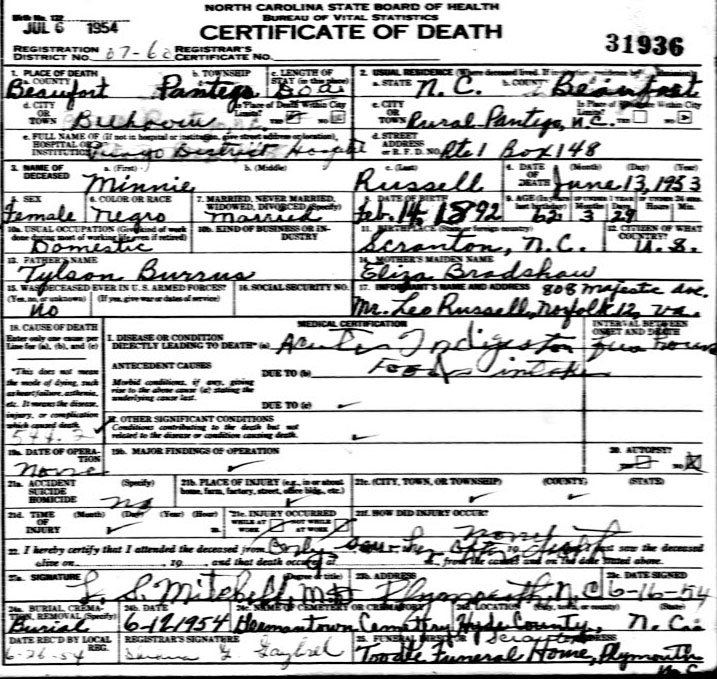 NORTH CAROLINA STATE BOARD OF HEALTH
BUREAU OF VITAL STATISTICS
Birth No. 132
JUL 6 1954
CERTIFICATE OF DEATH
31936
REGISTRATION DISTRICT No. 07-60 REGISTRAR'S CERTIFICATE No.
1. PLACE OF DEATH
a. COUNTY Beaufort b. TOWNSHIP Pantego c. LENGTH OF STAY (in this place)
2. USUAL RESIDENCE (Where deceased lived.
a. STATE N. C. b. COUNTY Beaufort
d. CITY OR TOWN Belhaven Is Place of Death Within City
c. CITY OR TOWN Rural Pantego, N.C.
e. FULL NAME OF (If not in hospital or institution, give street address or location)
HOSPITAL OR INSTITUTION Pungo District Hospital
d. STREET ADDRESS OR R. F. D. NO. Rte 1 Box 148
3. NAME OF DECEASED a. (First) Minnie b. (Middle) c. (Last) Russell
4. DATE OF DEATH (Month) (Day) (Year) June 13, 1953
5. SEX Female
6. COLOR OR RACE Negro
7. MARRIED, NEVER MARRIED, WIDOWED, DIVORCED (Specify) Married
8. DATE OF BIRTH Feb. 14, 1892
9. AGE (In years last birthday) 62 Months 3 Days 29 Hours Min.
10a. USUAL OCCUPATION (Give kind of work done during most of working life, even if retired) Domestic
10b. KIND OF BUSINESS OR INDUSTRY
11. BIRTHPLACE (State or foreign country) Scranton, N.C.
12. CITIZEN OF WHAT COUNTRY? U. S.
13. FATHER'S NAME Tylson Burrus
14. MOTHER'S MAIDEN NAME Eliza Bradshaw
15. WAS DECEASED EVER IN U. S. ARMED FORCES?
(Yes, no, or unknown) (If yes, give war or dates of service) No
16. SOCIAL SECURITY NO.
17. INFORMANT'S NAME AND ADDRESS 808 Majestic Ave.
Mr. Leo Russell, Norfolk 12, Va.
18. CAUSE OF DEATH
Enter only one cause per line for (a), (b), and (c)
MEDICAL CERTIFICATION
INTERVAL BETWEEN ONSET AND DEATH
I. DISEASE OR CONDITION DIRECTLY LEADING TO DEATH* (a) Acute Indigestion
ANTECEDENT CAUSES
DUE TO (b) Food intake
*This does not mean the mode of dying, such as heart failure, asthenia, etc. It means the disease, injury, or complication which caused death.
Morbid conditions, if any, giving rise to the above cause (a) stating the underlying cause last.
DUE TO (c)
544.2
II. OTHER SIGNIFICANT CONDITIONS
Conditions contributing to the death but not related to the disease or condition causing death.
19a. DATE OF OPERATION None
19b. MAJOR FINDINGS OF OPERATION
20. AUTOPSY?
21a. ACCIDENT SUICIDE HOMICIDE (Specify) No
21b. PLACE OF INJURY (e.g., in or about home, farm, factory, street, office bldg., etc.)
21c. (CITY, TOWN, OR TOWNSHIP) (COUNTY) (STATE)
21d. TIME OF INJURY (Month) (Day) (Year) (Hour) m.
21e. INJURY OCCURRED WHILE AT WORK NOT WHILE AT WORK
21f. HOW DID INJURY OCCUR? None
22. I hereby certify that I attended the deceased from
alive on 19 and that death occurred at m., from the causes and on the date stated above.
23a. SIGNATURE (Degree or title) L. S. Mitchell, MD
23b. ADDRESS Plymouth, N.C.
23c. DATE SIGNED 6-16-54
24a. BURIAL, CREMATION, REMOVAL (Specify) Burial
24b. DATE 6-121954
24c. NAME OF CEMETERY OR CREMATORY Germantown Cemetery
24d. LOCATION (City, town, or county) (State) Hyde County, N. Ca
Scranton
DATE REC'D BY LOCAL REG. 6-26-54
REGISTRAR'S SIGNATURE
25. FUNERAL DIRECTOR ADDRESS
Toodle Funeral Home, Plymouth N.C.